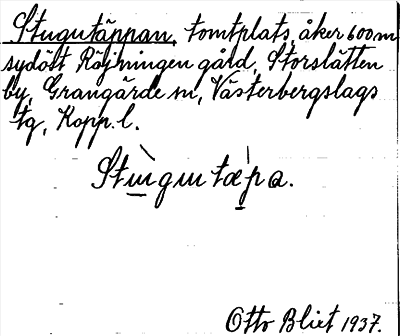 Stugutäppan, tomtplats, åker 600 m
sydött Röjningen gård, Storslätten
by, Grangärde sn, Västerbergslags
tg, Kopp. l.
Stùgutæ̀pa.
Otto Blixt 1937.